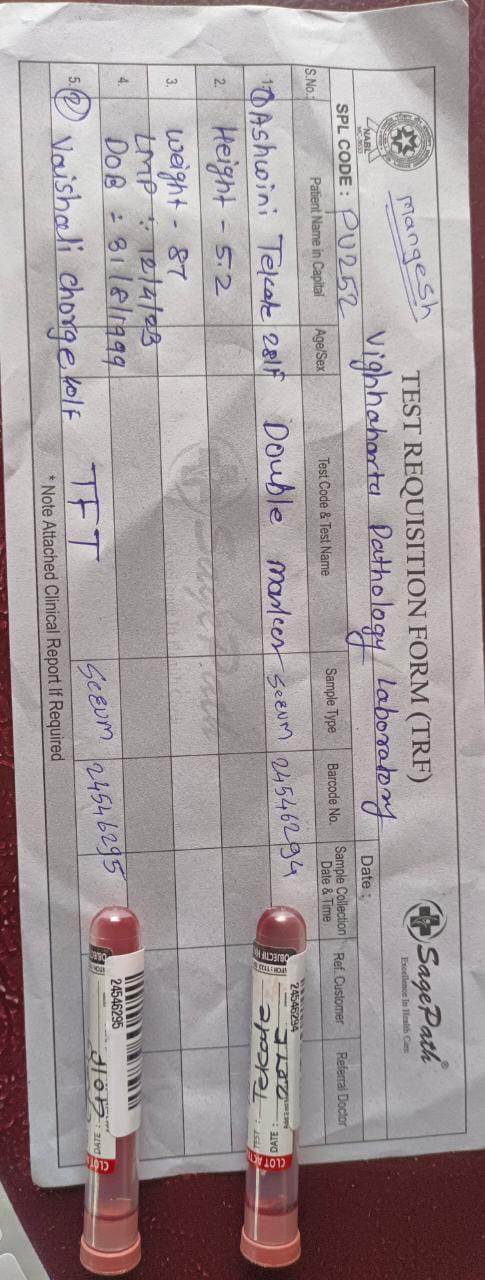 mangesh
NABL
TEST REQUISITION FORM (TRF)
SagePath®
Excellence In Health Care
SPL CODE : PU252
Vighnaharta Pathology Laboratory
Date :
S.No.: Patient Name in Capital Age/Sex Test Code & Test Name Sample Type Barcode No. Sample Collection Date & Time Ref. Customer Referral Doctor
1. ① Ashwini Tekale 28/F Double marker Serum 24546294
2. Height - 5.2
3. weight - 87
LMP : 12/4/23
4. DOB - 31/8/1999
5. ② Vaishali chorge 40/F TFT Serum 24546295
* Note Attached Clinical Report If Required
24546294
DATE :
CLOT ACTI
24546295
DATE :
CLOT